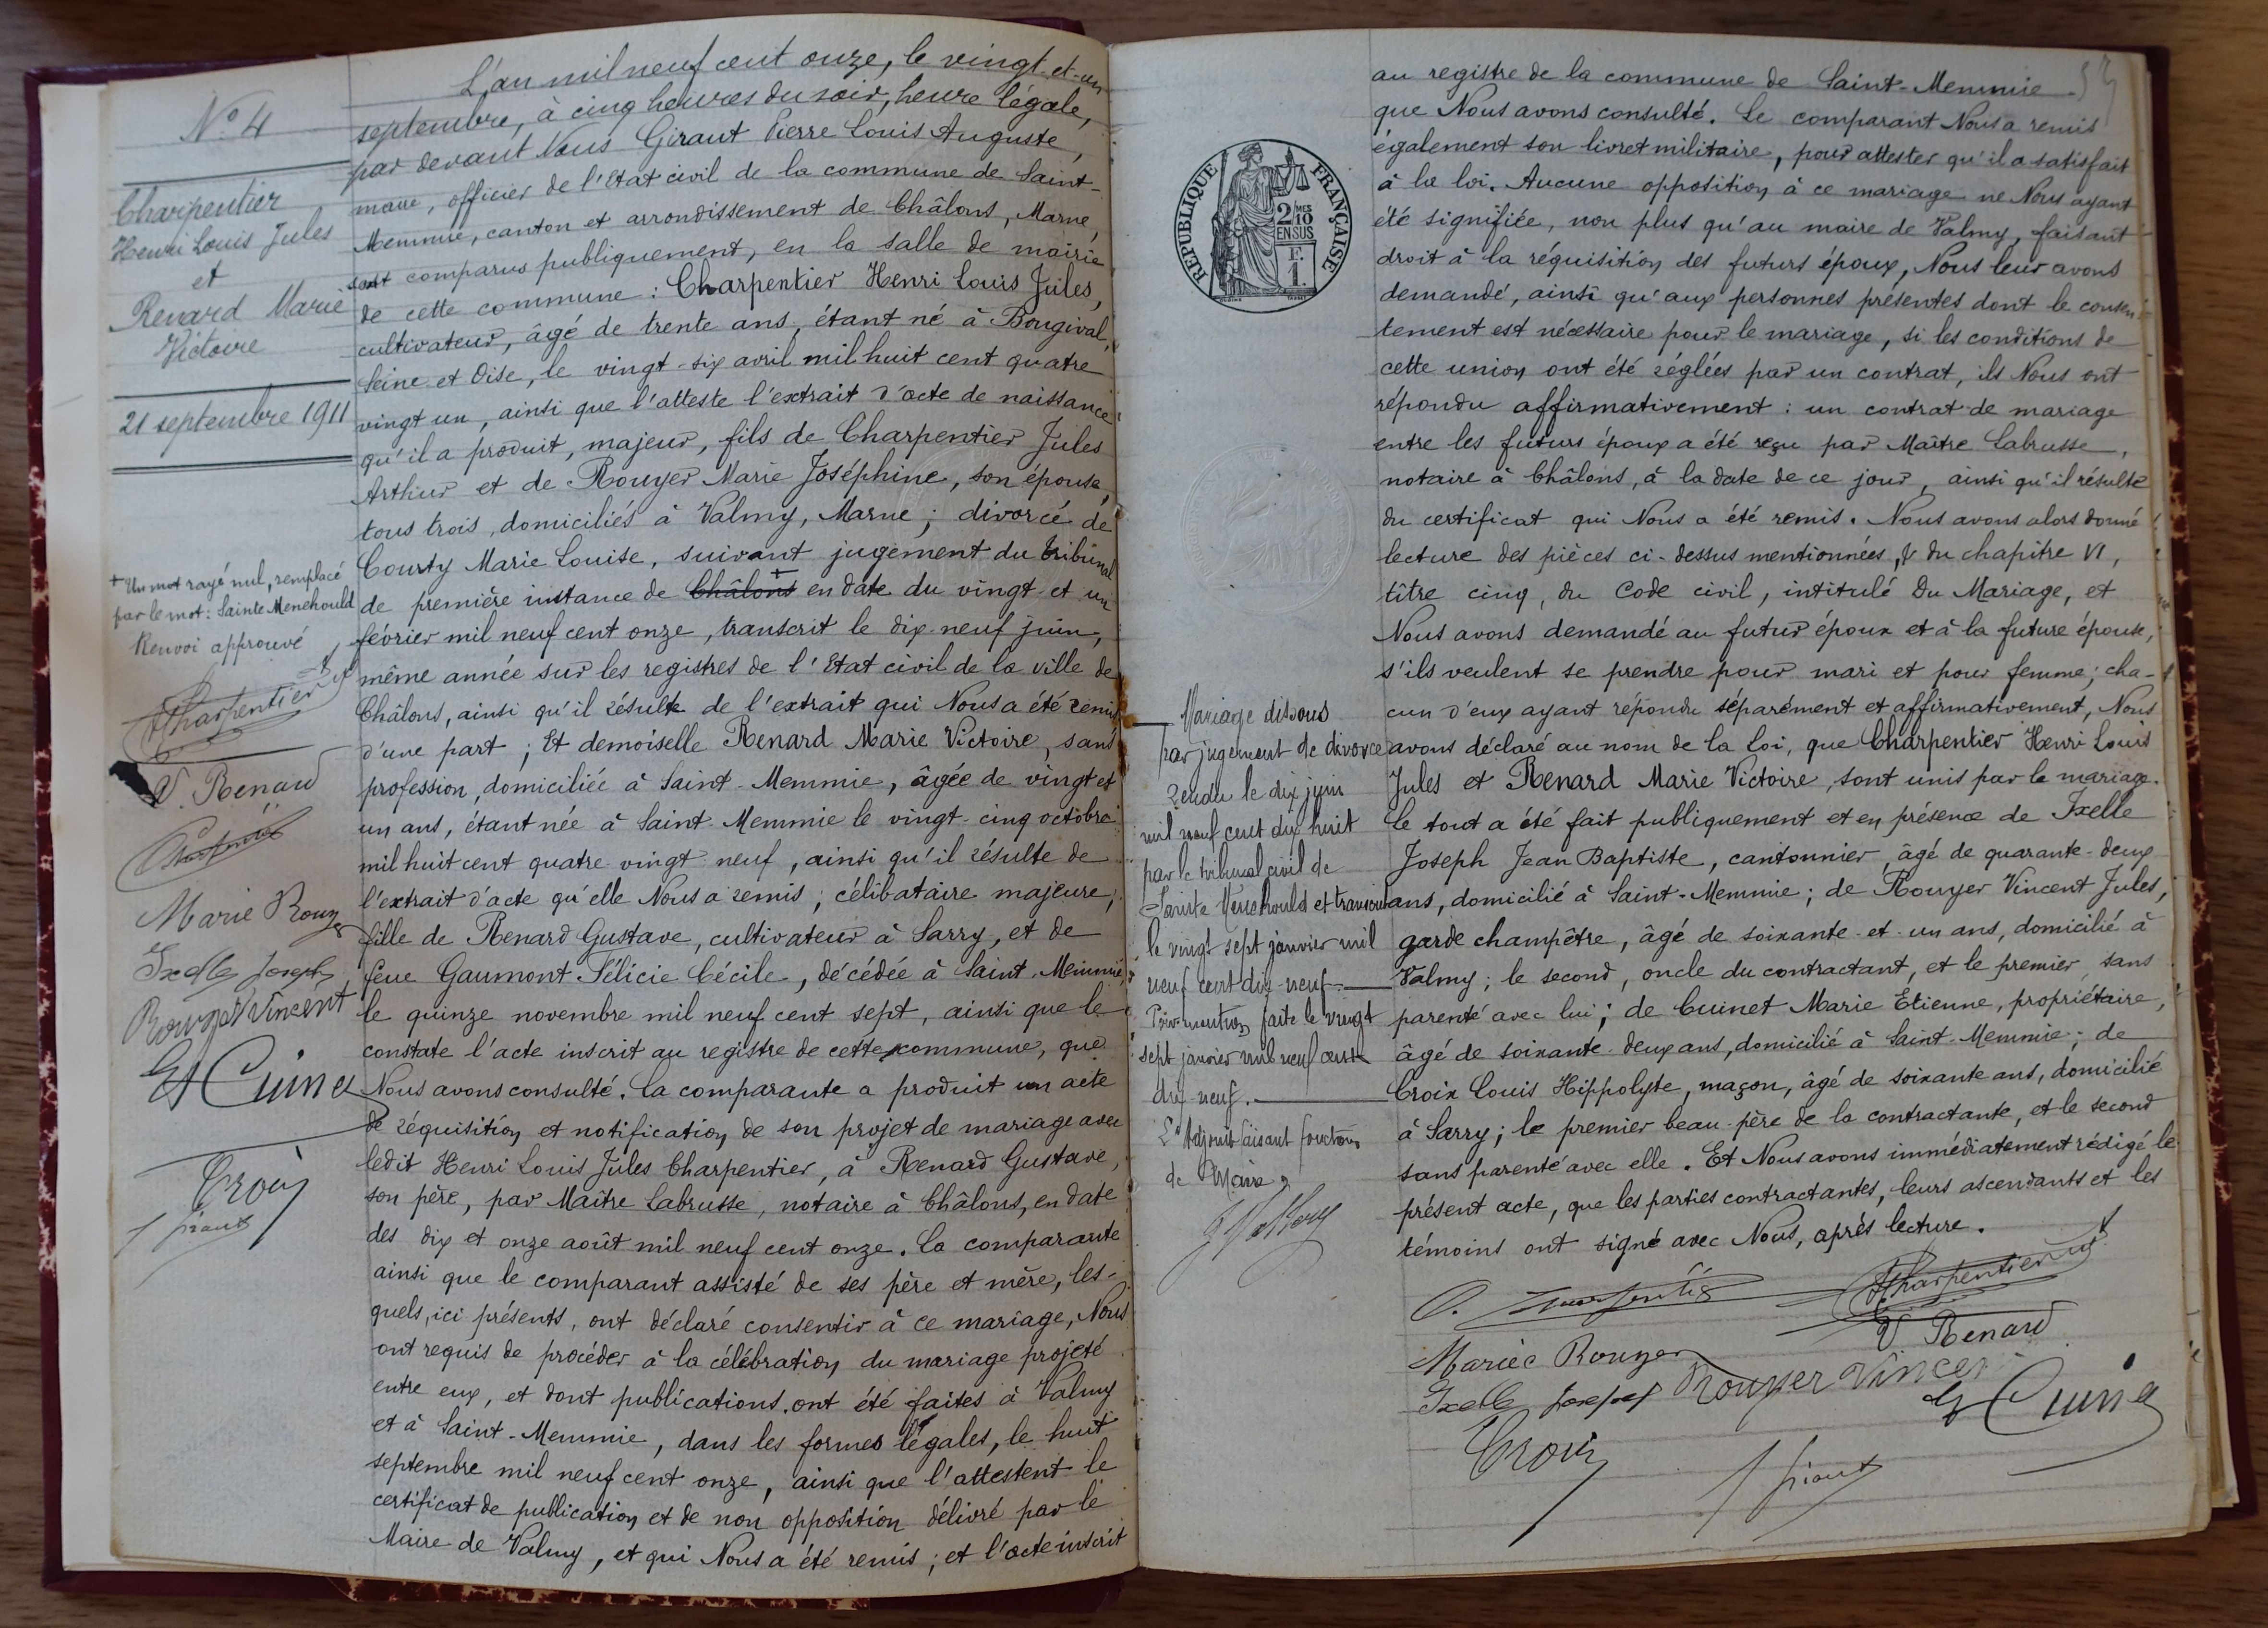 N° 4
Charpentier
Henri Louis Jules
et
Renard Marie
Victoire
21 septembre 1911
+ Un mot rayé nul, remplacé
par le mot : Sainte Menehould
Renvoi approuvé
Charpentier
V. Renard
Marie Rouyer
Ixelle Joseph
Rouyer Vincent
Et Cuinet
Croix
Giraut
L'an mil neuf cent onze, le vingt-et-un
septembre, à cinq heures du soir, heure légale,
par devant Nous Giraut Pierre Louis Auguste,
maire, officier de l'Etat civil de la commune de Saint-
Memmie, canton et arrondissement de Châlons, Marne,
sont comparus publiquement, en la salle de mairie
de cette commune : Charpentier Henri Louis Jules,
cultivateur, âgé de trente ans, étant né à Bougival,
Seine et Oise, le vingt-six avril mil huit cent quatre
vingt un, ainsi que l'atteste l'extrait d'acte de naissance
qu'il a produit, majeur, fils de Charpentier Jules
Arthur et de Rouyer Marie Joséphine, son épouse,
tous trois domiciliés à Valmy, Marne ; divorcé de
Courty Marie Louise, suivant jugement du tribunal
de première instance de Châlons + en date du vingt et un
février mil neuf cent onze, transcrit le dix-neuf juin,
même année sur les registres de l'Etat civil de la ville de
Châlons, ainsi qu'il résulte de l'extrait qui Nous a été remis
d'une part ; Et demoiselle Renard Marie Victoire, sans
profession, domiciliée à Saint-Memmie, âgée de vingt et
un ans, étant née à Saint-Memmie le vingt-cinq octobre
mil huit cent quatre vingt neuf, ainsi qu'il résulte de
l'extrait d'acte qu'elle Nous a remis ; célibataire majeure,
fille de Renard Gustave, cultivateur à Sarry, et de
feue Gaumont Félicie Cécile, décédée à Saint-Memmie,
le quinze novembre mil neuf cent sept, ainsi que le
constate l'acte inscrit au registre de cette commune, que
Nous avons consulté. La comparante a produit un acte
de réquisition et notification de son projet de mariage avec
ledit Henri Louis Jules Charpentier, à Renard Gustave,
son père, par Maître Labrusse, notaire à Châlons, en date
des dix et onze août mil neuf cent onze. La comparante
ainsi que le comparant assisté de ses père et mère, les-
quels, ici présents, ont déclaré consentir à ce mariage, Nous
ont requis de procéder à la célébration du mariage projeté
entre eux, et dont publications ont été faites à Valmy
et à Saint-Memmie, dans les formes légales, le huit
septembre mil neuf cent onze, ainsi que l'attestent le
certificat de publication et de non opposition délivré par le
Maire de Valmy, et qui Nous a été remis ; et l'acte inscrit
REPUBLIQUE FRANÇAISE
2 MES
10
EN SUS
F.
1.
Mariage dissous
par jugement de divorce
rendu le dix juin
mil neuf cent dix huit
par le tribunal civil de
Sainte Menehould et transcrit
le vingt sept janvier mil
neuf cent dix-neuf.
mention faite le vingt
sept janvier mil neuf cent
dix-neuf.
L'Adjoint faisant fonctions
de Maire,
au registre de la commune de Saint-Memmie
que Nous avons consulté. Le comparant Nous a remis
également son livret militaire, pour attester qu'il a satisfait
à la loi. Aucune opposition à ce mariage ne Nous ayant
été signifiée, non plus qu'au maire de Valmy, faisant
droit à la réquisition des futurs époux, Nous leur avons
demandé, ainsi qu'aux personnes présentes dont le consen-
tement est nécessaire pour le mariage, si les conditions de
cette union ont été réglées par un contrat, ils Nous ont
répondu affirmativement : un contrat de mariage
entre les futurs époux a été reçu par Maître Labrusse,
notaire à Châlons, à la date de ce jour, ainsi qu'il résulte
du certificat qui Nous a été remis. Nous avons alors donné
lecture des pièces ci-dessus mentionnées, & du chapitre VI,
tître cinq, du Code civil, intitulé Du Mariage, et
Nous avons demandé au futur époux et à la future épouse,
s'ils veulent se prendre pour mari et pour femme ; cha-
cun d'eux ayant répondu séparément et affirmativement, Nous
avons déclaré au nom de la loi, que Charpentier Henri Louis
Jules et Renard Marie Victoire, sont unis par le mariage.
Le tout a été fait publiquement et en présence de Ixelle
Joseph Jean Baptiste, cantonnier, âgé de quarante-deux
ans, domicilié à Saint-Memmie ; de Rouyer Vincent Jules,
garde champêtre, âgé de soixante-et-un ans, domicilié à
Valmy ; le second, oncle du contractant, et le premier sans
parenté avec lui ; de Cuinet Marie Etienne, propriétaire,
âgé de soixante-deux ans, domicilié à Saint-Memmie ; de
Croix Louis Hippolyte, maçon, âgé de soixante ans, domicilié
à Sarry ; le premier beau-père de la contractante, et le second
sans parenté avec elle. Et Nous avons immédiatement rédigé le
présent acte, que les parties contractantes, leurs ascendants et les
témoins ont signé avec Nous, après lecture.
Charpentier
V Renard
Marie Rouyer
Ixelle Joseph Rouyer Vincent
Et Cuinet
Croix
Giraut